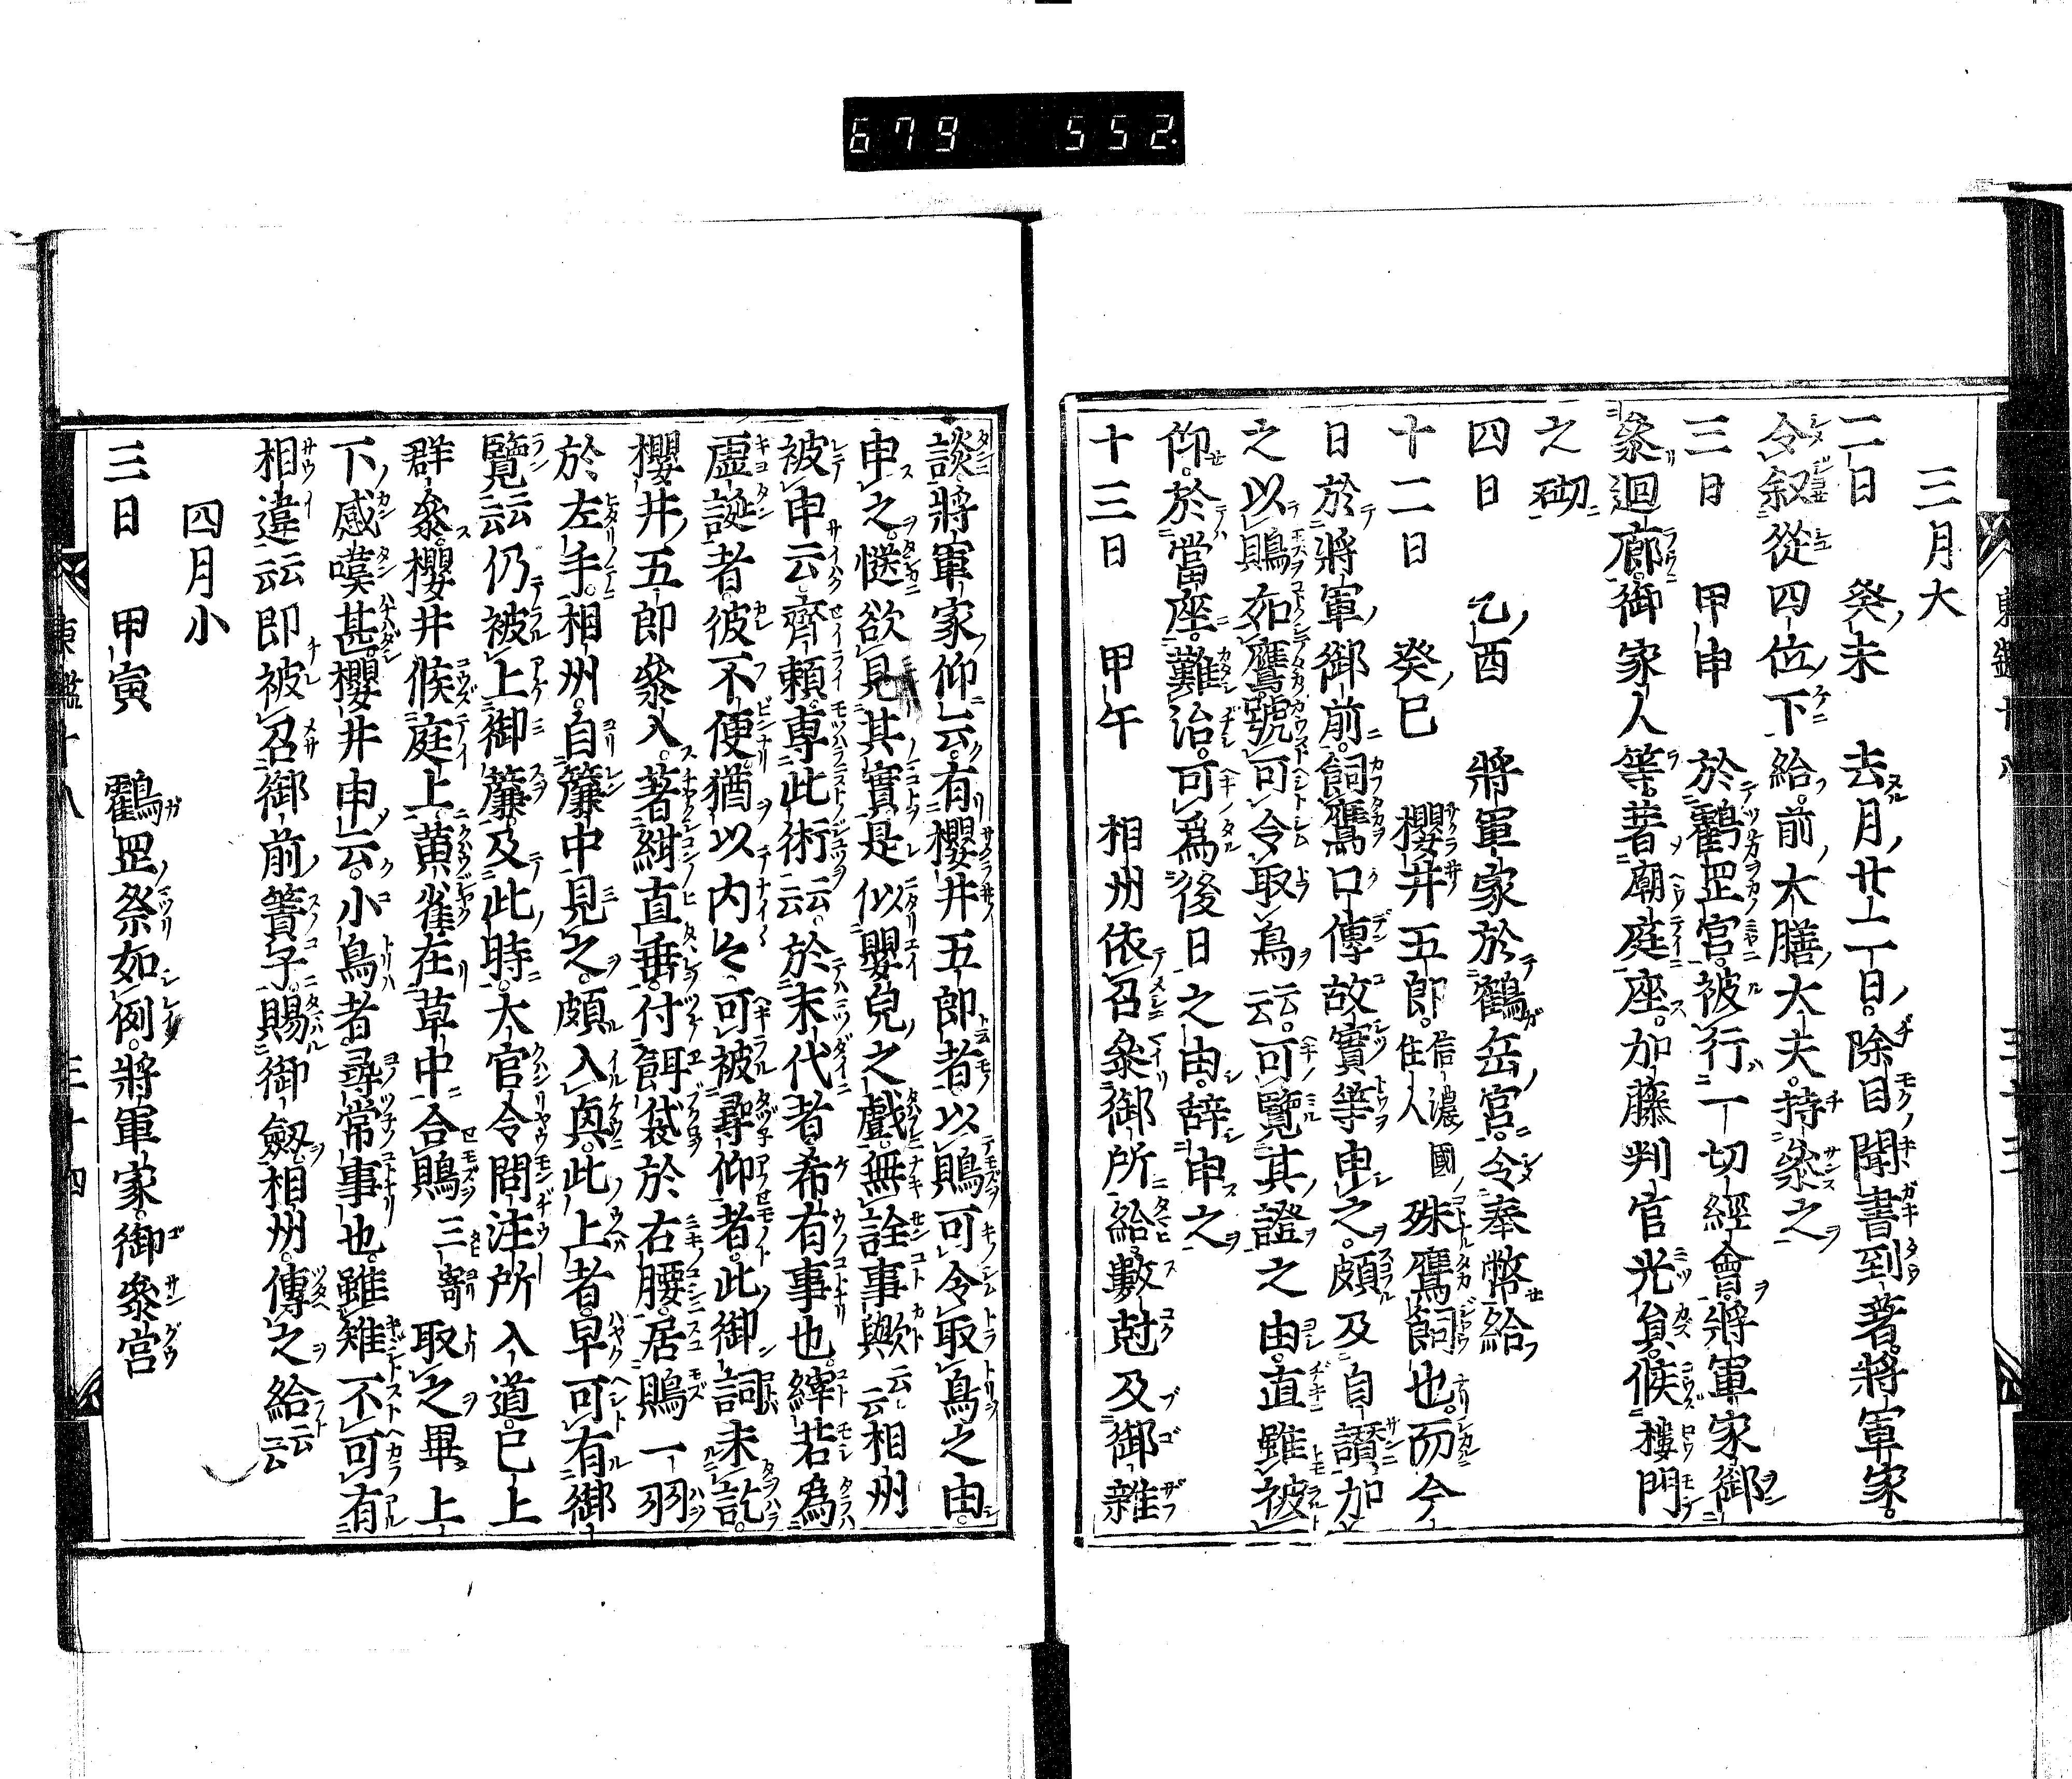 679 552.
三月大
二日 癸未 去月廿一日除目聞書到著將軍家
令叙從四位下給前大膳大夫持參之
三日 甲申 於鶴罡宮被行一切經會將軍家御
參廻廊御家人等著廟庭座加藤判官光員候樓門
之砌
四日 乙酉 將軍家於鶴岳宮令奉幣給
十二日 癸巳 櫻井五郎信濃國住人殊鷹飼也而今
日於將軍御前飼鷹口傳故實等申之頗及自讚加
之以鵙如鷹號可令取鳥云云可覽其證之由直雖被
仰於當座難治可爲後日之由辞申之
十三日 甲午 相州依召參御所給數尅及御雜
談將軍家仰云有櫻井五郎者以鵙可令取鳥之由
申之慥欲見其實是似嬰兒之戲無詮事歟云云相州
被申云齊頼專此術云云於末代者希有事也縡若爲
虛誕者彼不便猶以内々可被尋仰者此御詞未訖
櫻井五郎參入著紺直垂付餌袋於右腰居鵙一羽
於左手相州自簾中見之頗入興此上者早可有御
覽云云仍被上御簾及此時大官令問注所入道已上
群參櫻井候庭上黄雀在草中合鵙三寄取之畢上
下感嘆甚櫻井申云小鳥者尋常事也雖雉不可有
相違云云即被召御前簀子賜御劔相州傳之給云云
四月小
三日 甲寅 鶴罡祭如例將軍家御參宮
東鑑十八 三十四